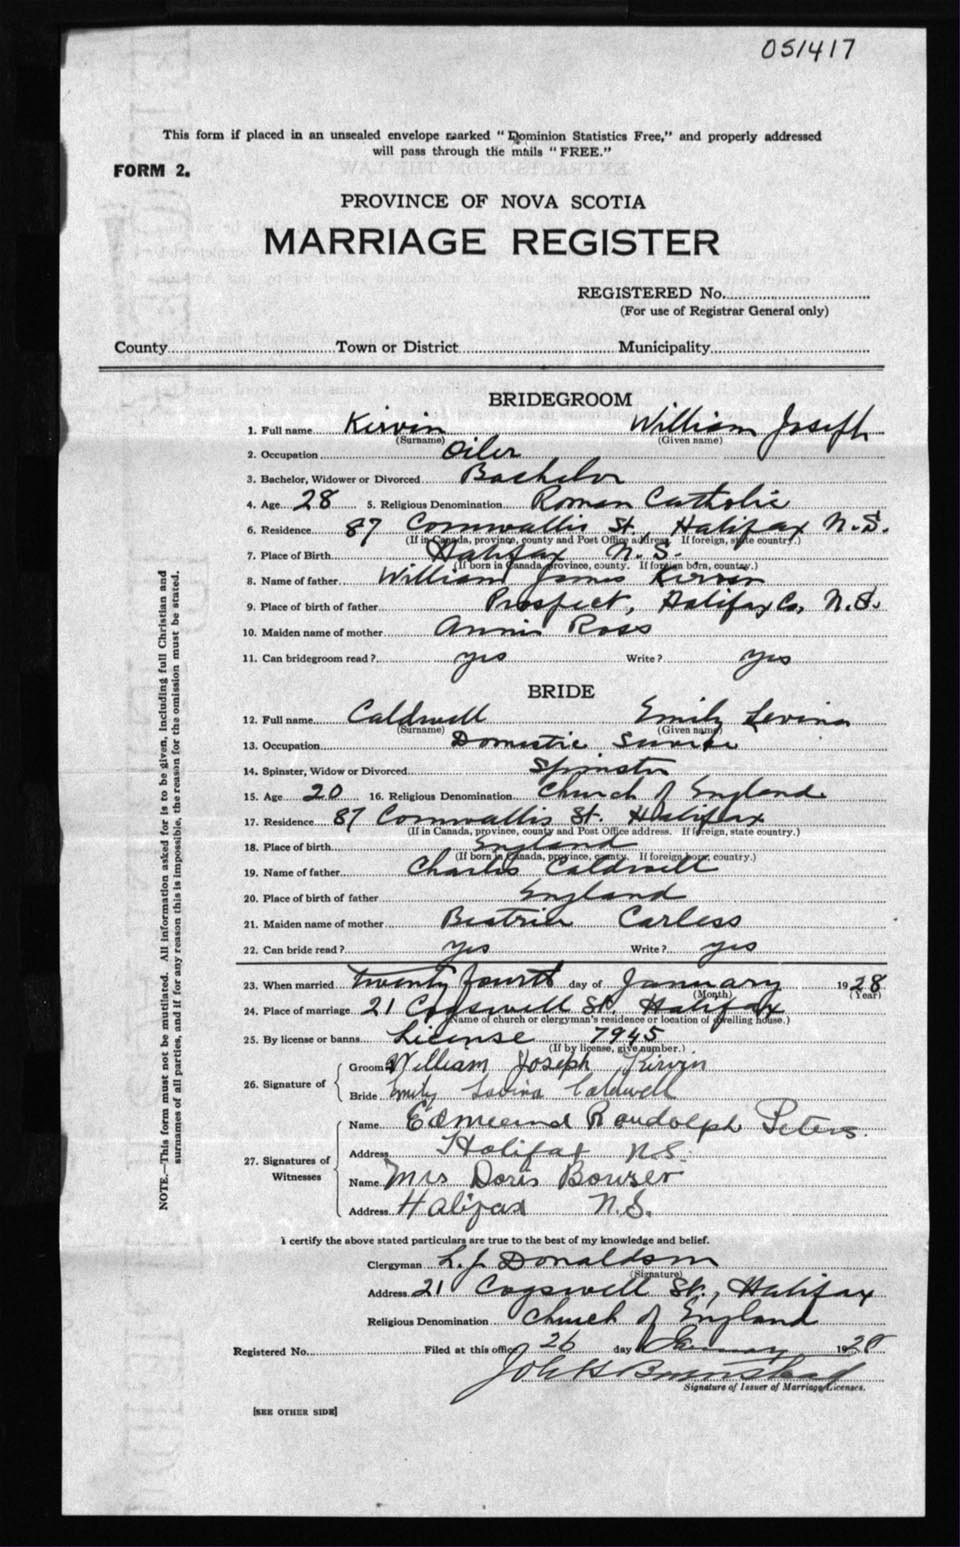 051417
This form if placed in an unsealed envelope marked "Dominion Statistics Free," and properly addressed
will pass through the mails "FREE."
FORM 2.
PROVINCE OF NOVA SCOTIA
MARRIAGE REGISTER
REGISTERED No.
(For use of Registrar General only)
County Town or District Municipality
BRIDEGROOM
1. Full name Kirvin William Joseph
(Surname) (Given name)
2. Occupation Oiler
3. Bachelor, Widower or Divorced Bachelor
4. Age 28 5. Religious Denomination Roman Catholic
6. Residence 87 Cornwallis St., Halifax N.S.
(If in Canada, province, county and Post Office address. If foreign, state country.)
7. Place of Birth Halifax N.S.
(If born in Canada, province, county. If foreign born, country.)
8. Name of father William James Kirvin
9. Place of birth of father Prospect, Halifax Co, N.S.
10. Maiden name of mother Annie Ross
11. Can bridegroom read? yes Write? yes
BRIDE
12. Full name Caldwell Emily Levina
(Surname) (Given name)
13. Occupation Domestic Service
14. Spinster, Widow or Divorced Spinster
15. Age 20 16. Religious Denomination Church of England
17. Residence 87 Cornwallis St. Halifax
(If in Canada, province, county and Post Office address. If foreign, state country.)
18. Place of birth England
(If born in Canada, province, county. If foreign born, country.)
19. Name of father Charles Caldwell
20. Place of birth of father England
21. Maiden name of mother Beatrice Carless
22. Can bride read? yes Write? yes
23. When married twenty fourth day of January 1928
(Month) (Year)
24. Place of marriage 21 Cogswell St. Halifax
(Name of church or clergyman's residence or location of dwelling house.)
25. By license or banns License 7945
(If by license, give number.)
26. Signature of Groom William Joseph Kirvin
Bride Emily Lavina Caldwell
27. Signatures of Witnesses
Name Edmund Randolph Peters
Address Halifax N.S.
Name Mrs Doris Bowser
Address Halifax N.S.
I certify the above stated particulars are true to the best of my knowledge and belief.
Clergyman L.J. Donaldson
(Signature)
Address 21 Cogswell St., Halifax
Religious Denomination Church of England
Registered No. Filed at this office 26 day January 1928
Signature of Issuer of Marriage Licenses.
[SEE OTHER SIDE]
NOTE.—This form must not be mutilated. All information asked for is to be given, including full Christian and
surnames of all parties, and if for any reason this is impossible, the reason for the omission must be stated.